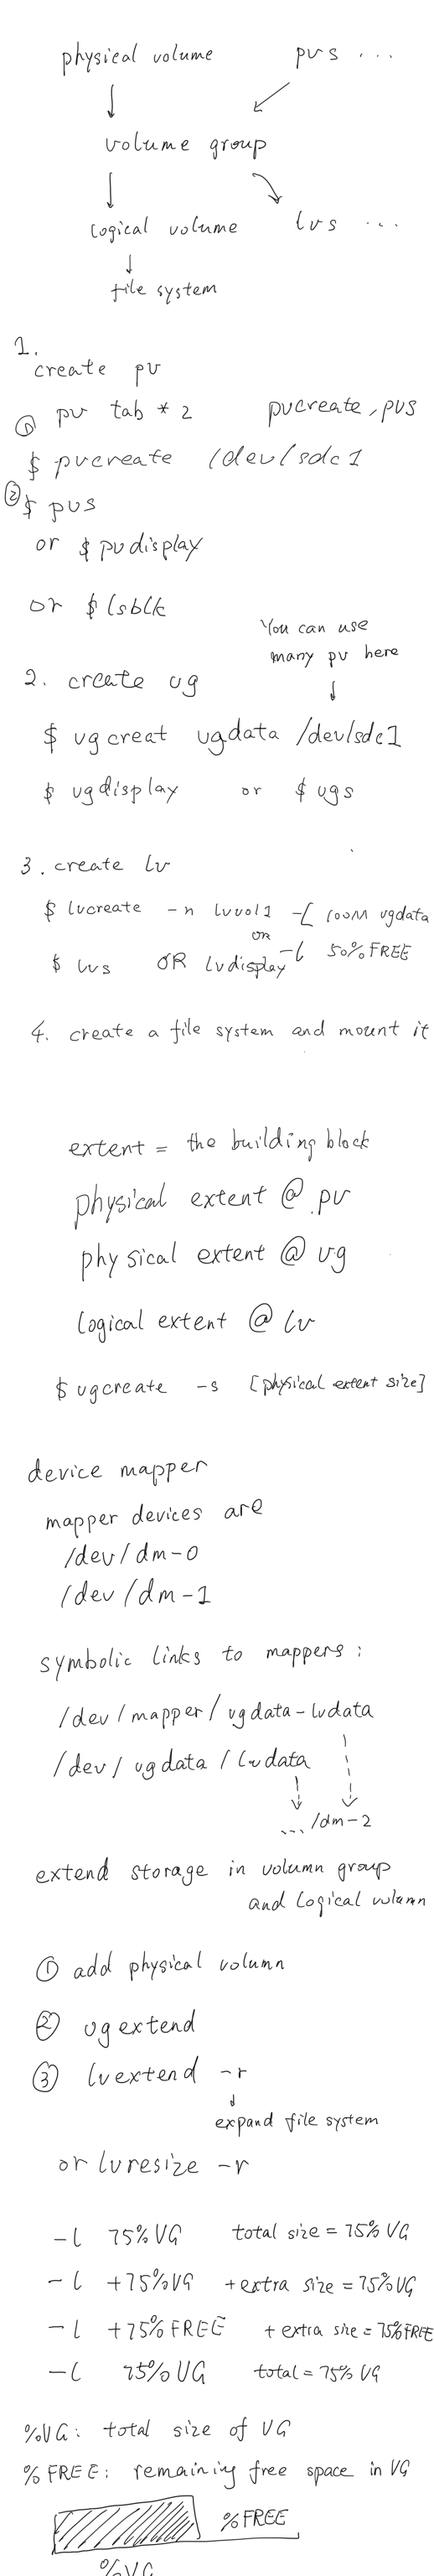 physical volume pvs ...
volume group
logical volume lvs ...
file system
1.
create pv
① pv tab * 2 pvcreate, pvs
$ pvcreate /dev/sdc1
② $ pvs
or $ pvdisplay
or $ lsblk
You can use
many pv here
2. create vg
$ vgcreat vgdata /dev/sdc1
$ vgdisplay or $ vgs
3. create lv
$ lvcreate -n lvvol1 -L 100M vgdata
or
-l 50%FREE
$ lvs OR lvdisplay
4. create a file system and mount it
extent = the building block
physical extent @ pv
physical extent @ vg
logical extent @ lv
$ vgcreate -s [physical extent size]
device mapper
mapper devices are
/dev/dm-0
/dev/dm-1
symbolic links to mappers :
/dev/mapper/vgdata-lvdata
/dev/vgdata/lvdata
.../dm-2
extend storage in volumn group
and logical volumn
① add physical volumn
② vgextend
③ lvextend -r
expand file system
or lvresize -r
-l 75%VG total size = 75% VG
-l +75%VG + extra size = 75% VG
-l +75% FREE + extra size = 75% FREE
-l 75% VG total = 75% VG
%VG: total size of VG
% FREE: remaining free space in VG
% FREE
% VG